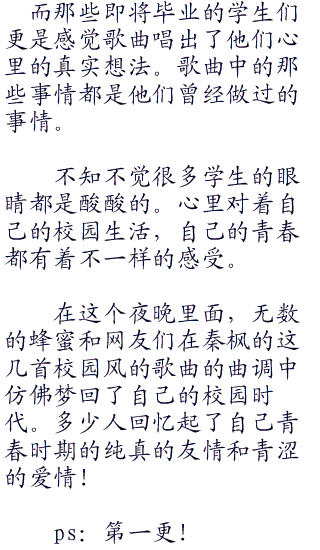 而那些即将毕业的学生们
更是感觉歌曲唱出了他们心
里的真实想法。歌曲中的那
些事情都是他们曾经做过的
事情。
不知不觉很多学生的眼
睛都是酸酸的。心里对着自
己的校园生活，自己的青春
都有着不一样的感受。
在这个夜晚里面，无数
的蜂蜜和网友们在秦枫的这
几首校园风的歌曲的曲调中
仿佛梦回了自己的校园时
代。多少人回忆起了自己青
春时期的纯真的友情和青涩
的爱情！
ps：第一更！